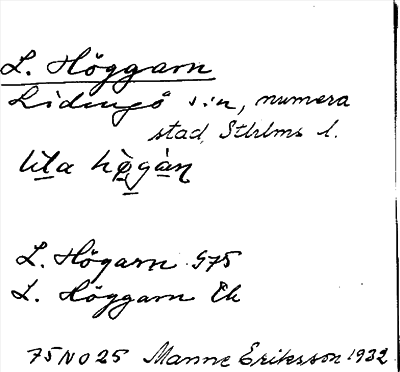 L. Höggarn
Lidingö s:n, numera
stad, Sthlms l.
lila högan
L. Högarn G75
L. Höggarn Ek
75 NO 25 Manne Eriksson 1932